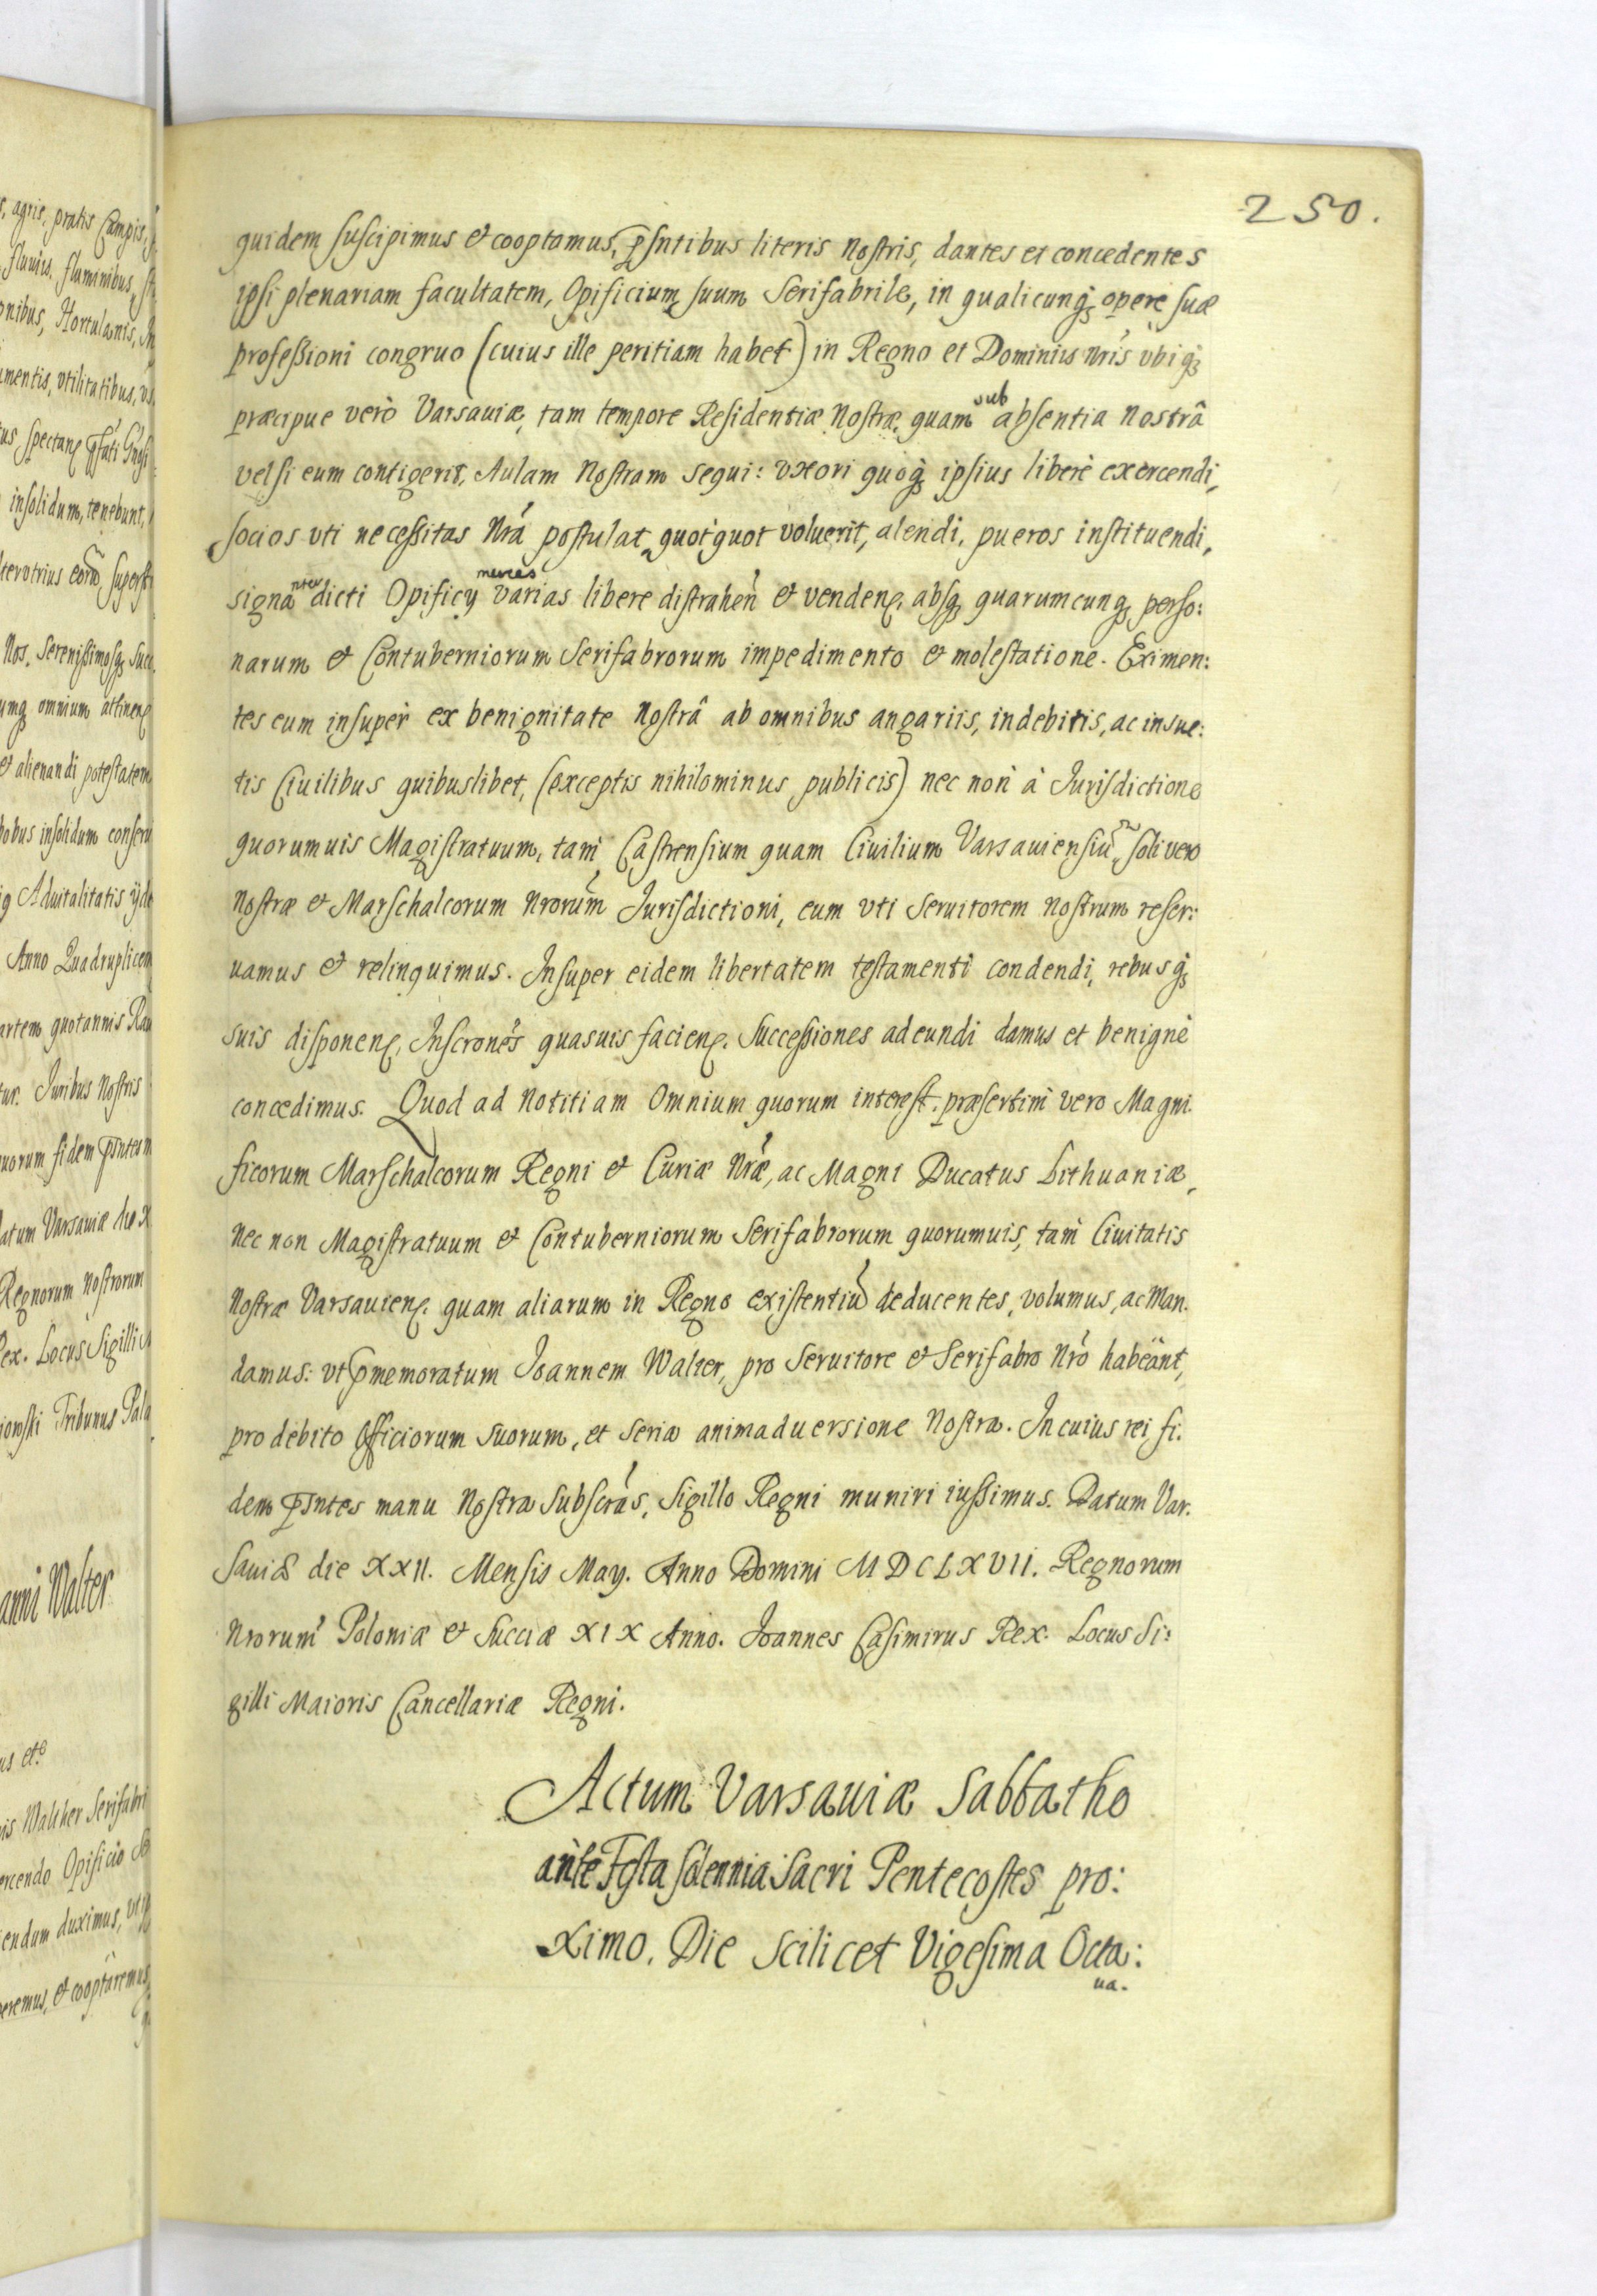 250.
quidem suscipimus et cooptamus, pñtibus literis Nostris, dantes et concedentes
ipsi plenariam facultatem, Opificium suum Serifabrile, in qualicunq; opere suæ
professioni congruo (cuius ille peritiam habet) in Regno et Dominiis nris vbiq;
præcipue verò Varsauiæ, tam tempore Residentiæ Nostræ, quam sub absentia nostrâ
vel si eum contigerit, Aulam Nostram sequi: vxori quoq; ipsius liberè exercendi,
socios vti necessitas Nrá postulat, quotquot voluerit, alendi, pueros instituendi,
signanter dicti Opificij merces varias libere distrahen et venden, absq; quarumcunq; perso:
narum et Contuberniorum Serifabrorum impedimento et molestatione. Eximen:
tes eum insuper ex benignitate Nostrâ ab omnibus angariis, indebitis, ac insue:
tis Ciuilibus quibuslibet, (exceptis nihilominus publicis) nec non à Jurisdictione
quorumuis Magistratuum, tam Castrensium quam Ciuilium Varsauiensiũ, soli vero
Nostræ et Marschalcorum Nrorum Jurisdictioni, eum vti Seruitorem Nostrum reser:
uamus et relinquimus. Insuper eidem libertatem testamenti condendi, rebusq;
suis disponen, Inscrones quasuis facien, Successiones adeundi damus et benignè
concedimus. Quod ad Notitiam Omnium quorum interest, præsertim vero Magni.
ficorum Marschalcorum Regni et Curiæ Nræ, ac Magni Ducatus Lithuaniæ,
Nec non Magistratuum et Contuberniorum Serifabrorum quorumuis, tam Ciuitatis
Nostræ Varsauien, quam aliarum in Regno existentiũ deducentes, volumus, ac Man.
damus: vt pmemoratum Joannem Walter, pro Seruitore et Serifabro Nro habeant,
pro debito Officiorum suorum, et seria animaduersione Nostra. In cuius rei fi.
dem pñtes manu Nostra Subscras, Sigillo Regni muniri iussimus. Datum Var.
Sauiæ die XXII. Mensis May. Anno Domini MDCLXVII. Regnorum
Nrorum Poloniæ et Sueciæ XIX Anno. Joannes Casimirus Rex. Locus Si:
gilli Maioris Cancellariæ Regni.
Actum Varsauiæ Sabbatho
ante Festa Solennia Sacri Pentecostes pro:
ximo. Die scilicet Vigesima Octa:
ua.